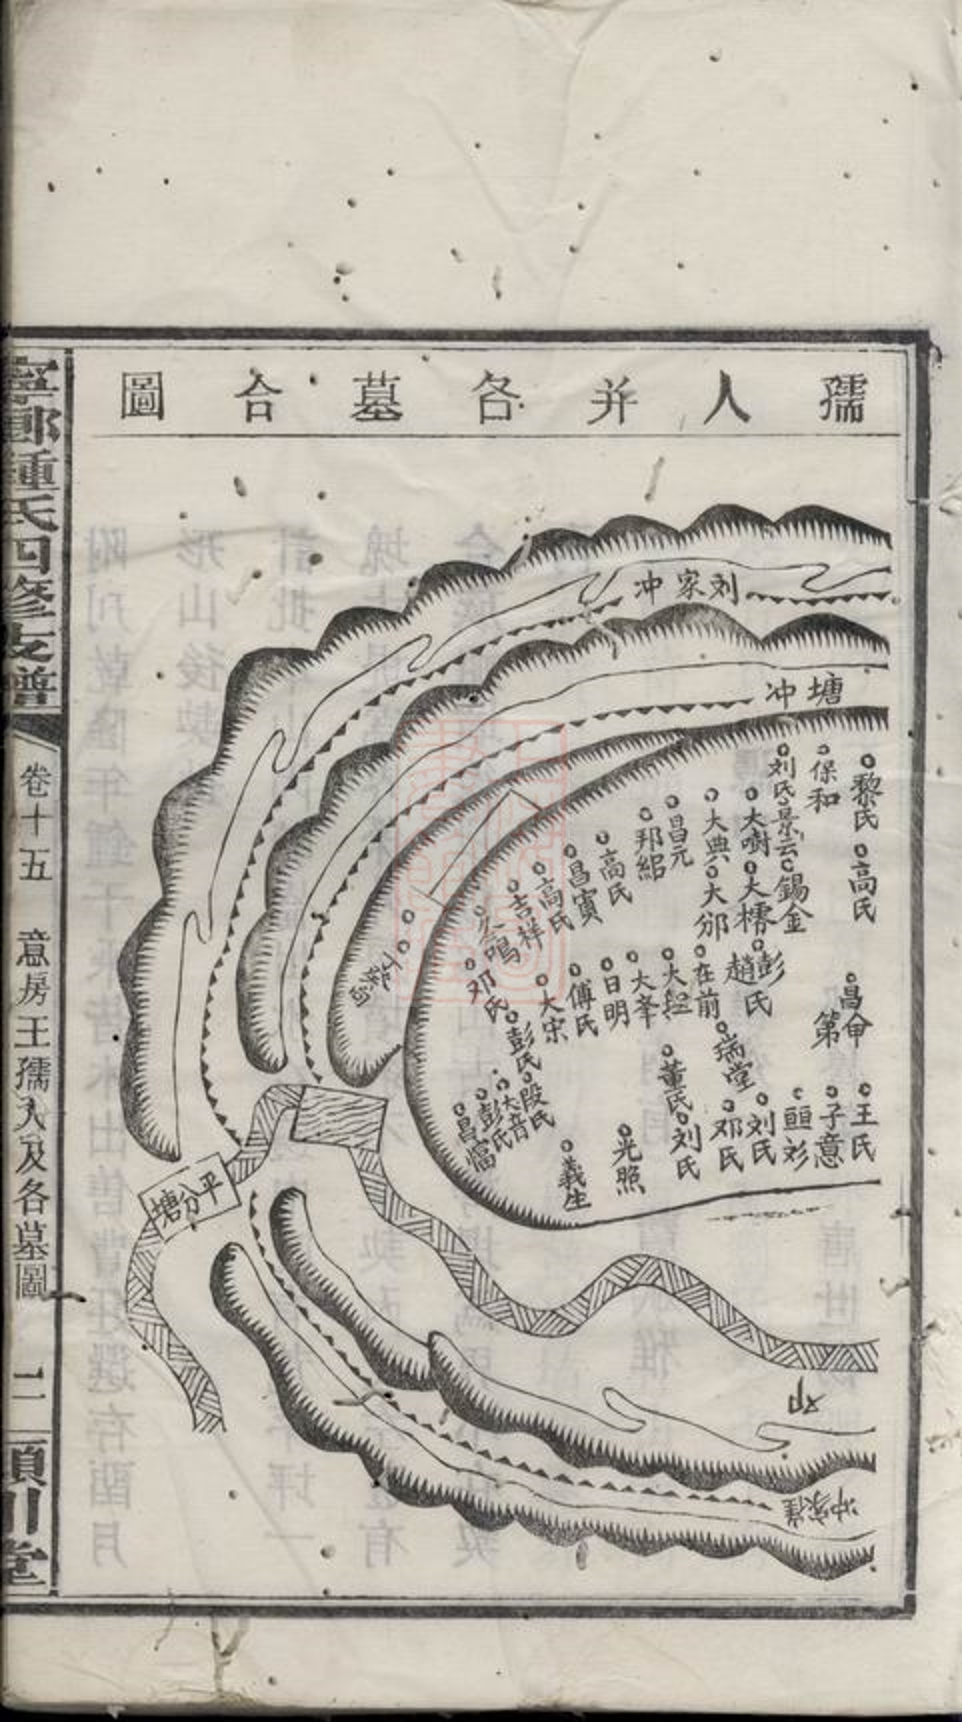 孺人并各墓合圖
刘家冲
塘冲
黎氏
高氏
保和
刘氏
景云
錫金
大樹
大樗
彭氏
趙
大典
大邠
在前
昌元
邦紹
高氏
昌賓
高氏
吉祥
邓氏
昌命
第
大宋
傅氏
日明
大峯
瑞堂
董氏
刘氏
邓氏
刘氏
子意
王氏
彭氏
段氏
大音
彭氏
義生
光照
平分塘
邓
冲家崔
寧鄉鍾氏四修支譜
卷十五
意房王孺人及各墓圖
二
潁川堂